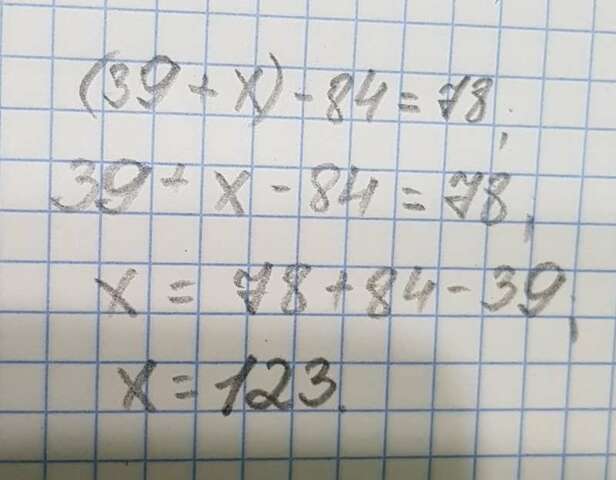 (39 + x) - 84 = 78;
39 + x - 84 = 78,
x = 78 + 84 - 39,
x = 123.